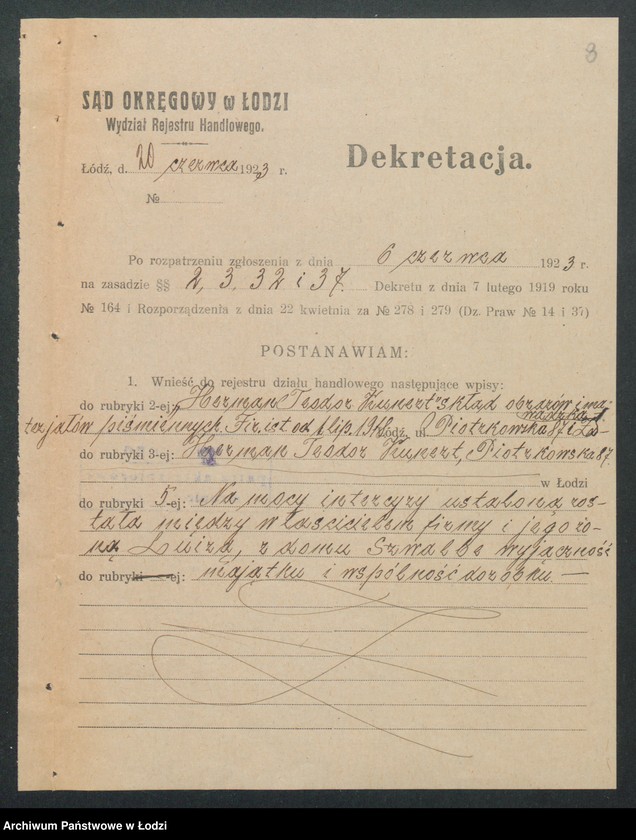 8
SĄD OKRĘGOWY w ŁODZI
Wydział Rejestru Handlowego.
Łódź, d. 20 czerwca 1923 r.
Dekretacja.
№
Po rozpatrzeniu zgłoszenia z dnia 6 czerwca 1923 r.
na zasadzie §§ 2, 3, 32 i 37. Dekretu z dnia 7 lutego 1919 roku
№ 164 i Rozporządzenia z dnia 22 kwietnia za № 278 i 279 (Dz. Praw № 14 i 37)
POSTANAWIAM:
1. Wnieść do rejestru działu handlowego następujące wpisy:
do rubryki 2-ej: „Herman Teodor Kunert" skład obrazów i ma-
terjałów piśmiennych. Fir. ist. od 1 lip. Łódź, ul. Piotrkowska 87 i Za-
wadzka 1
do rubryki 3-ej: Herman Teodor Kunert, Piotrkowska 87.
w Łodzi
do rubryki 5-ej: Na mocy intercyzy ustalona zos-
tała między właścicielem firmy i jego żo-
ną Luizą, z domu Szwalbe wyłączność
do rubryki -ej: majątku i wspólność dorobku. —
Archiwum Państwowe w Łodzi